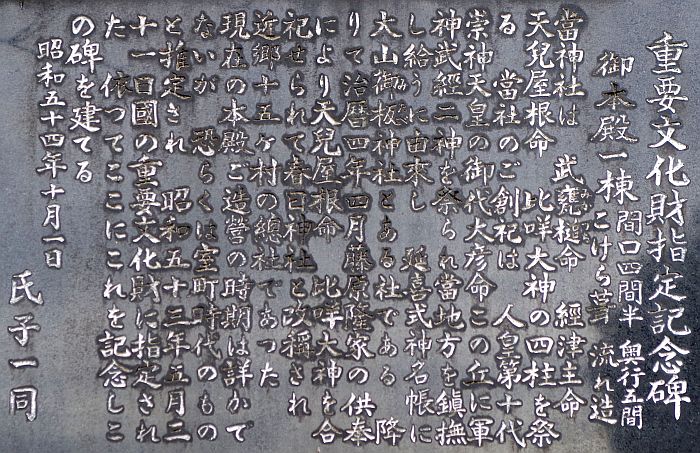 重要文化財指定記念碑
御本殿一棟 間口四間半 奥行五間
こけら葺 流れ造
當神社は 武甕槌命 経津主命
天兒屋根命 比咩大神の四柱を祭
る 當社のご創祀は 人皇第十代
崇神天皇の御代大彦命この丘に軍
神武經二神を祭られ當地方を鎮撫
し給うに由來し 延喜式神名帳に
大山御板神社とある社である 降
りて治暦四年四月藤原隆家の供奉
により天兒屋根命 比咩大神を合
祀せられて春日神社と改稱され
近郷十五ヶ村の總社であった
現在の本殿ご造營の時期は詳かで
ないが 恐らくは室町時代のもの
と推定され 昭和五十三年五月三
十一日國の重要文化財に指定され
た 依つてここにこれを記念しこ
の碑を建てる
昭和五十四年十月一日
氏子一同